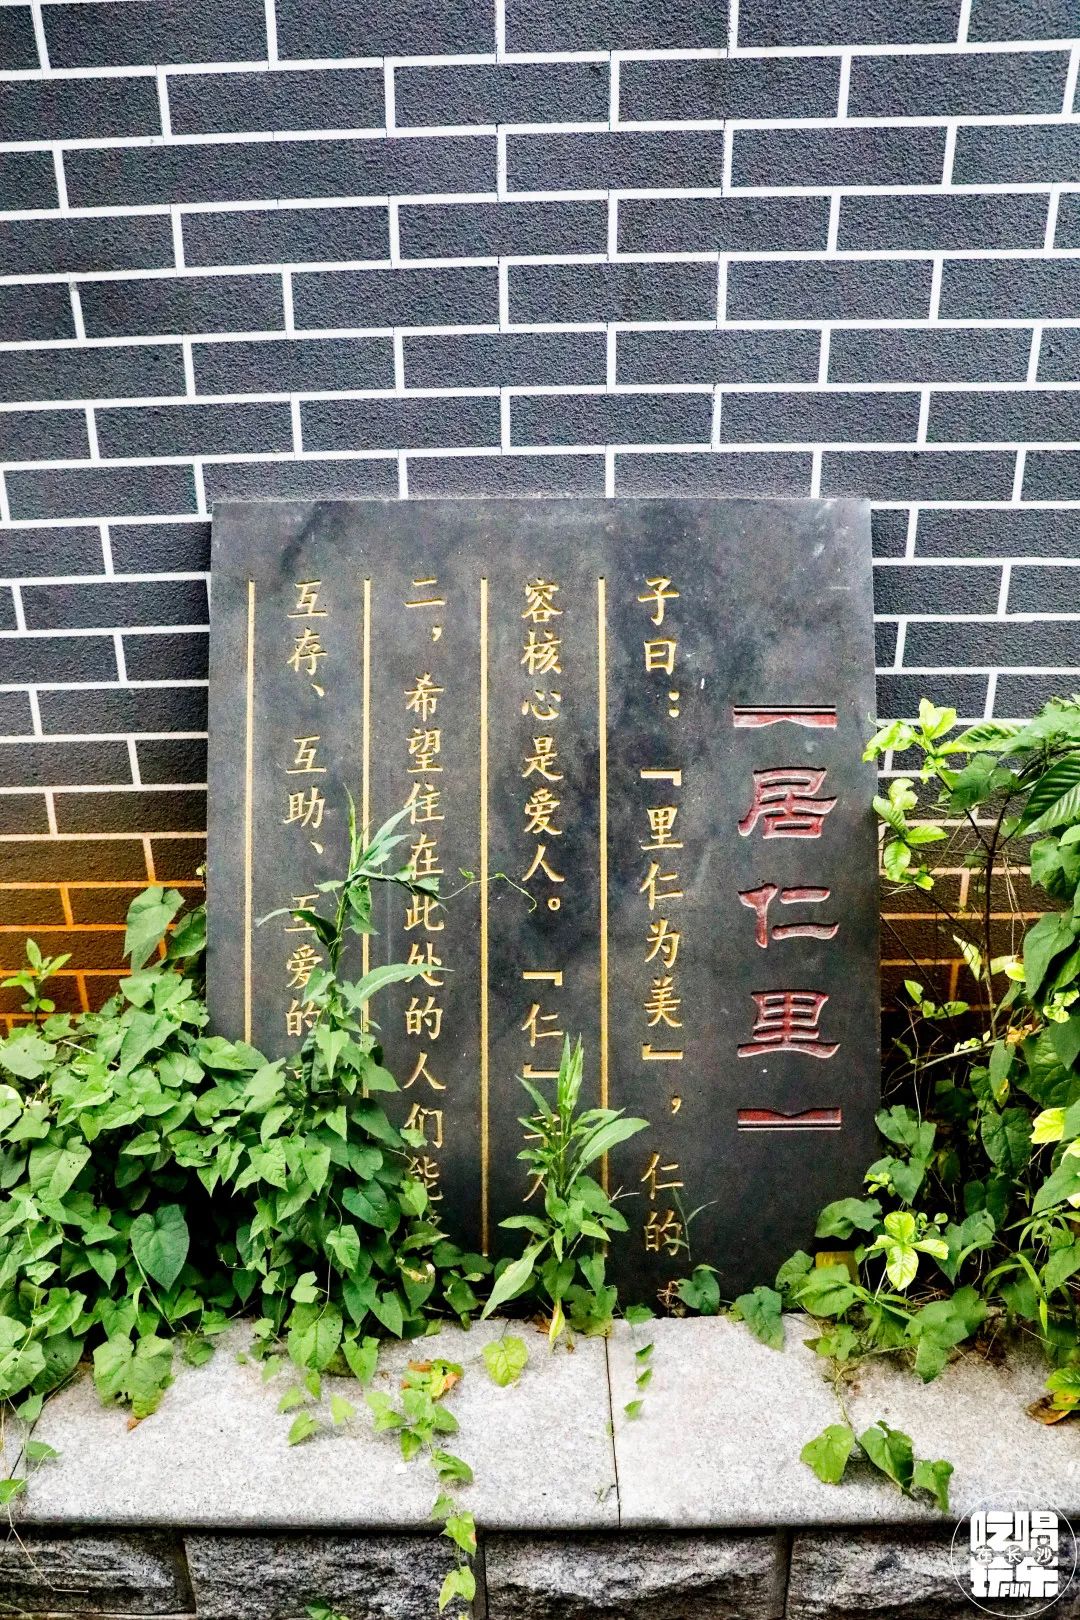 【居仁里】
子曰：『里仁为美』，仁的
容核心是爱人。『仁』字人
二，希望住在此处的人们能够
互存、互助、互爱的
吃喝
在长沙
玩乐
FUN